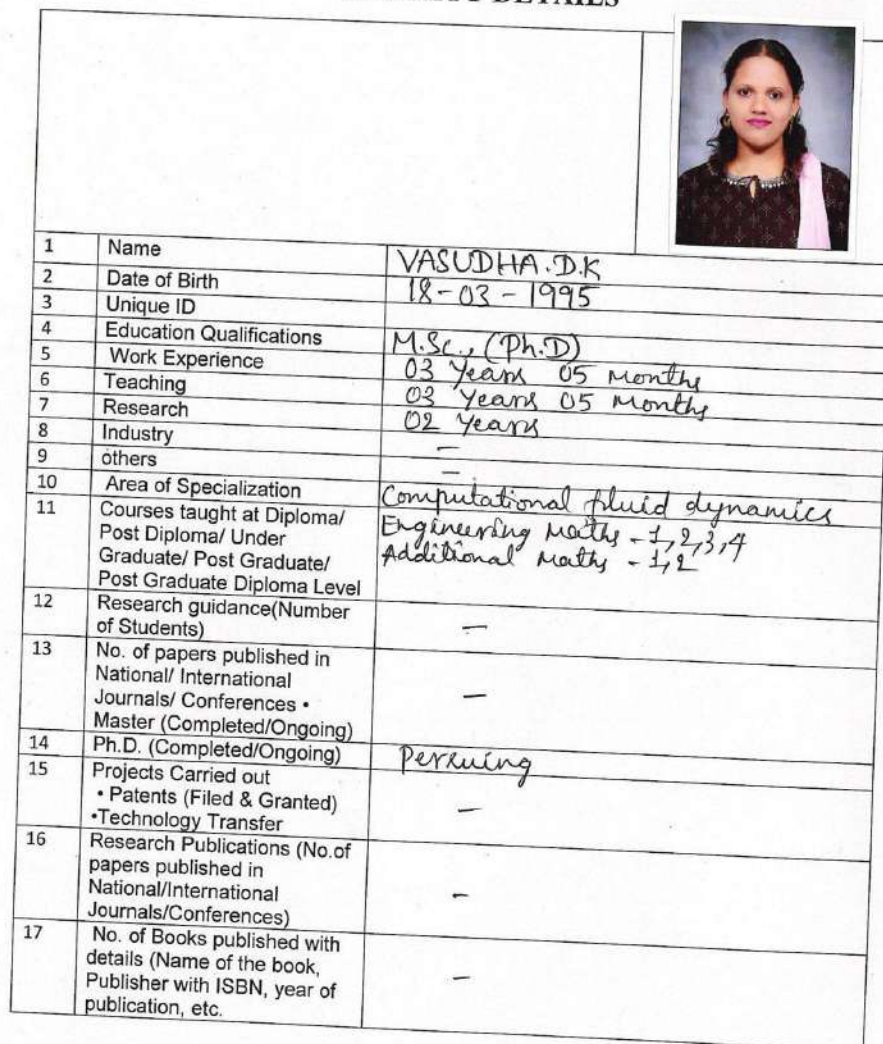 DETAILS
1 Name VASUDHA.D.K
2 Date of Birth 18-03-1995
3 Unique ID
4 Education Qualifications M.Sc., (Ph.D)
5 Work Experience 03 Years 05 Months
6 Teaching 03 Years 05 Months
7 Research 02 Years
8 Industry –
9 others –
10 Area of Specialization Computational fluid dynamics
11 Courses taught at Diploma/ Engineering Maths - 1,2,3,4
Post Diploma/ Under Additional Maths - 1,2
Graduate/ Post Graduate/
Post Graduate Diploma Level
12 Research guidance(Number
of Students) –
13 No. of papers published in
National/ International
Journals/ Conferences • –
Master (Completed/Ongoing)
14 Ph.D. (Completed/Ongoing) Persuing
15 Projects Carried out
• Patents (Filed & Granted) –
•Technology Transfer
16 Research Publications (No.of
papers published in
National/International –
Journals/Conferences)
17 No. of Books published with
details (Name of the book,
Publisher with ISBN, year of –
publication, etc.